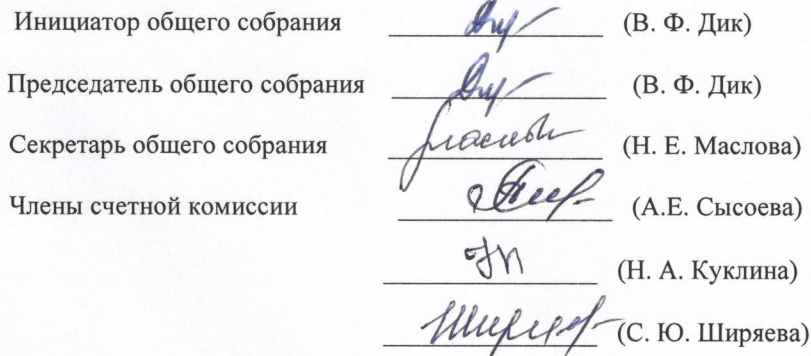 Инициатор общего собрания (В. Ф. Дик)
Председатель общего собрания (В. Ф. Дик)
Секретарь общего собрания (Н. Е. Маслова)
Члены счетной комиссии (А.Е. Сысоева)
(Н. А. Куклина)
(С. Ю. Ширяева)